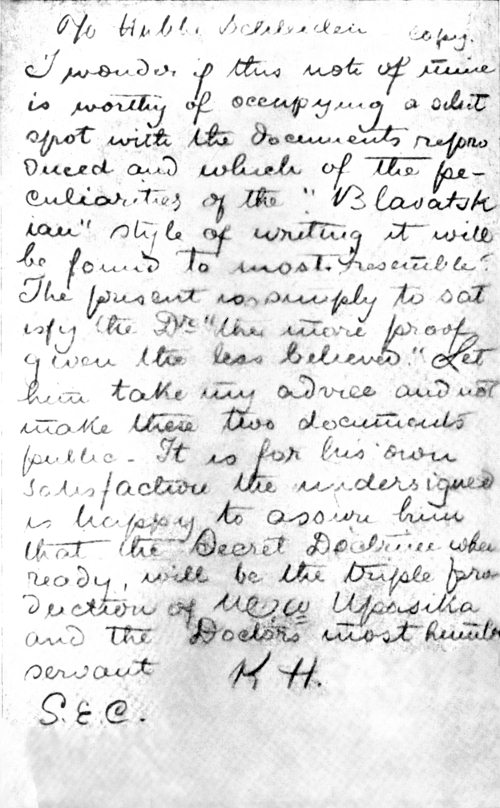 %o Hübbe Schleiden copy.
I wonder if this note of mine
is worthy of occupying a select
spot with the documents repro
duced and which of the pe-
culiarities of the "Blavatsk
ian" style of writing it will
be found to most resemble?
The present is simply to sat
isfy the Dr. "the more proof
given the less believed." Let
him take my advice and not
make these two documents
public - It is for his own
satisfaction the undersigned
is happy to assure him
that the Secret Doctrine when
ready, will be the triple pro
duction of Upasika
and the Doctors most humble
servant K H.
S.E.C.